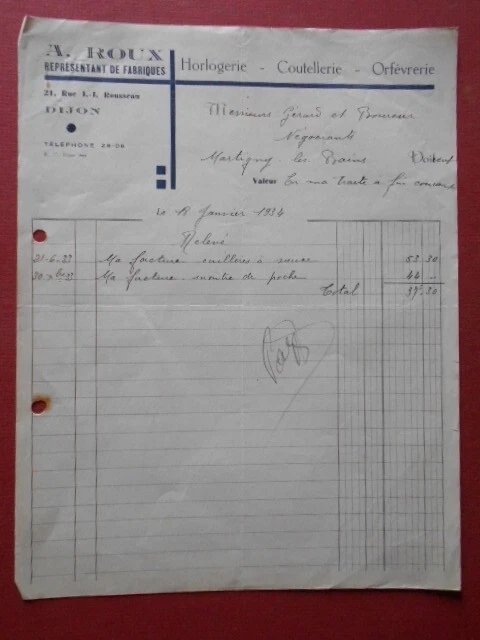 A. ROUX
REPRÉSENTANT DE FABRIQUES
Horlogerie - Coutellerie - Orfèvrerie
21, Rue J.-J. Rousseau
DIJON
TÉLÉPHONE 28-06
Messieurs Gérard et
Négociants
Martigny les Bains Doivent
Valeur En ma traite a fin courant
Le 18 Janvier 1934
Relevé
21-6-33 Ma facture cuillères à 53 30
30 Xbre 33 Ma facture montre de poche 44 -
Total 97 30